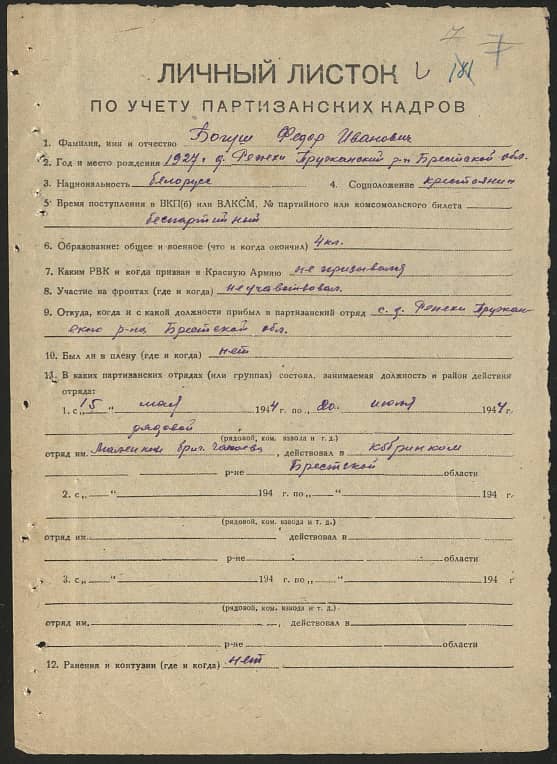 7 7
181
ЛИЧНЫЙ ЛИСТОК
ПО УЧЕТУ ПАРТИЗАНСКИХ КАДРОВ
1. Фамилия, имя и отчество Богуш Федор Иванович
2. Год и место рождения 1927 г. д. Ренеки Пружанский р-н Брестской обл.
3. Национальность белорус 4. Соцположение крестьянин
5. Время поступления в ВКП(б) или ВЛКСМ, № партийного или комсомольского билета
беспартийный
6. Образование: общее и военное (что и когда окончил) 4 кл.
7. Каким РВК и когда призван в Красную Армию не призывался
8. Участие на фронтах (где и когда) не участвовал.
9. Откуда, когда и с какой должности прибыл в партизанский отряд с. д. Ренеки Пружан-
ского р-на Брестской обл.
10. Был ли в плену (где и когда) нет
11. В каких партизанских отрядах (или группах) состоял, занимаемая должность и район действия
отряда:
1. с „15" мая 1944 г. по „20" июля 1944 г.
рядовой
(рядовой, ком. взвода и т. д.)
отряд им. бриг. Чапаева, действовал в Кобринском
р-не Брестской области
2. с „ " 194 г. по „ " 194 г.
(рядовой, ком. взвода и т. д.)
отряд им. действовал в
р-не области
3. с „ " 194 г. по „ " 194 г.
(рядовой, ком. взвода и т. д.)
отряд им. , действовал в
р-не области
12. Ранения и контузии (где и когда) нет